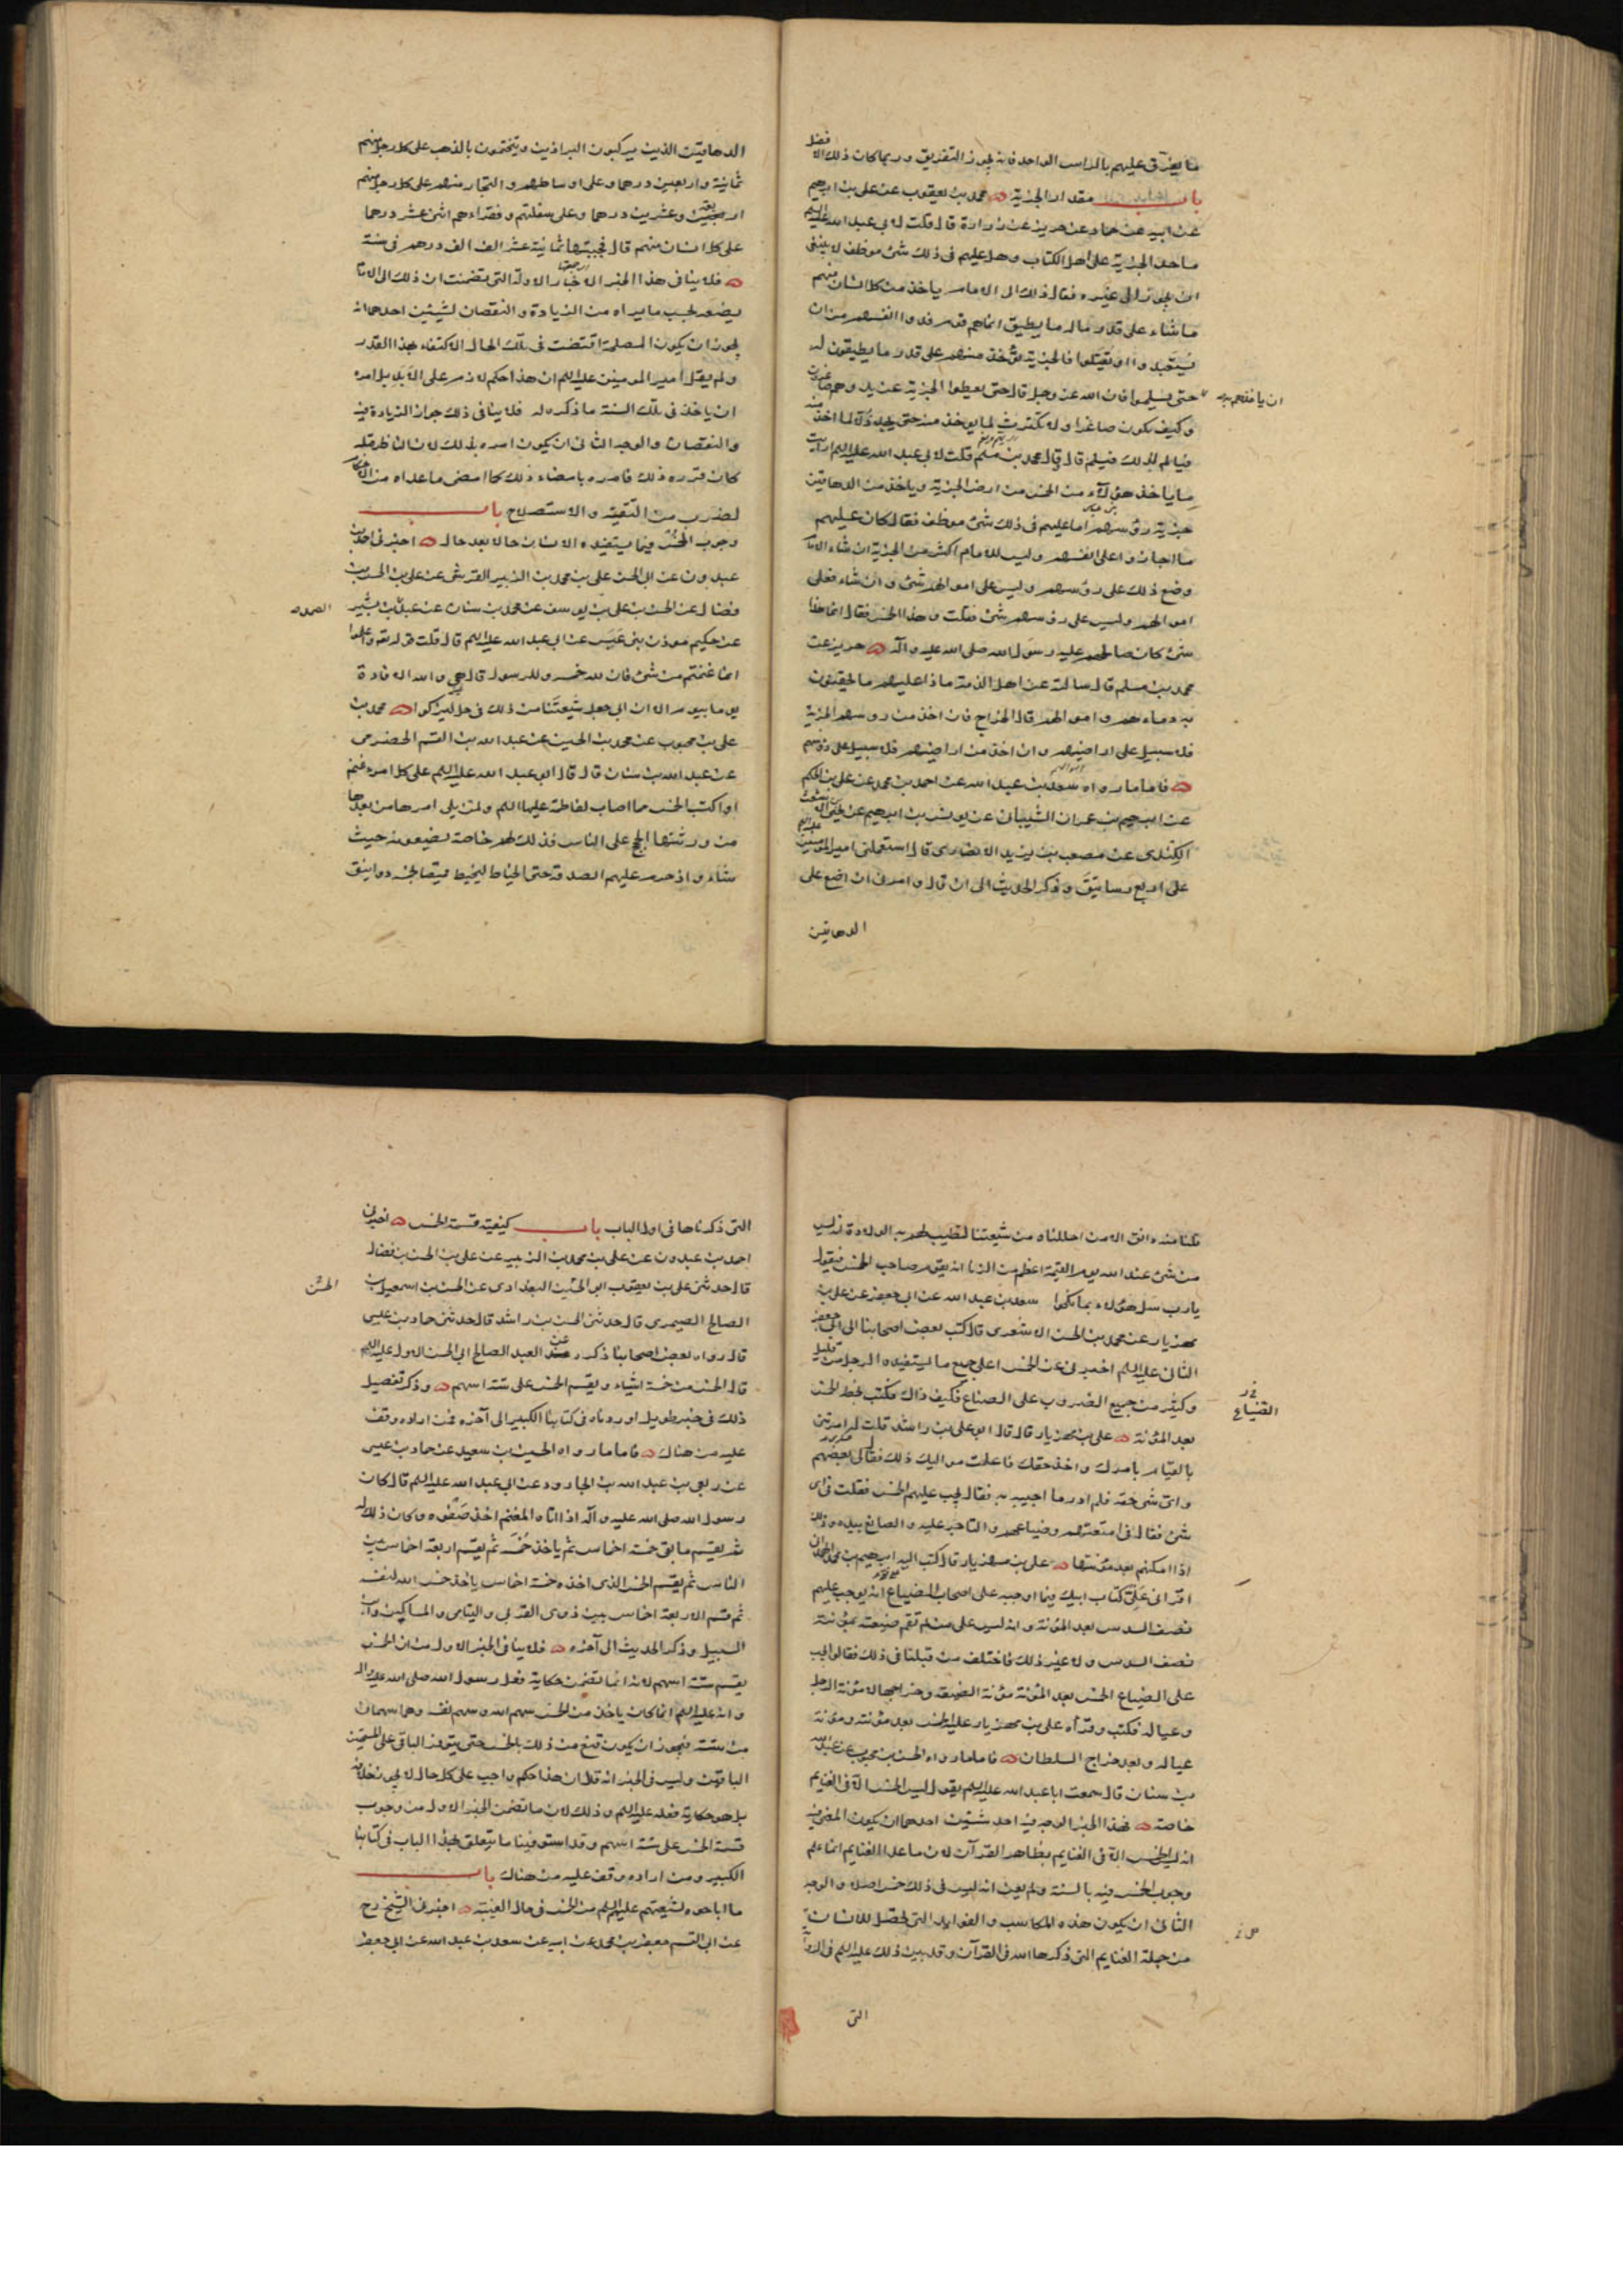 ما يفرق عليهم بالراس الواحد فانه يجوز التفريق وربما كان ذلك افضل
باب مقدار الجزية محمد بن يعقوب عن علي بن ابرهيم
عن ابيه عن حماد عن حريز عن زرارة قال قلت لابي عبد الله عليه السلم
ما حد الجزية على اهل الكتاب وهل عليهم في ذلك شئ موظف لا ينبغي
ان يجوز الى غيره فقال ذلك الى الامام ياخذ من كل انسان منهم
ما شاء على قدر ماله ما يطيق انما هم قوم فدوا انفسهم من ان
يستعبدوا او يقتلوا فالجزية تؤخذ منهم على قدر ما يطيقون له
ان ياخذهم به
حتى يسلموا فان الله عز وجل قال حتى يعطوا الجزية عن يد وهم صاغرون
وكيف يكون صاغرا ولا يكترث لما يؤخذ منه حتى يجد ذلا لما اخذ منه
فيالم لذلك فيسلم قال قال محمد بن مسلم قلت لابي عبد الله عليه السلم ارايت
ما ياخذ هؤلاء من الخمس من ارض الجزية وياخذ من الدهاقين
جزية رؤسهم اما عليهم في ذلك شئ موظف فقال كان عليهم
ما اجازوا على انفسهم وليس للامام اكثر من الجزية ان شاء الامام
وضع ذلك على رؤسهم وليس على اموالهم شئ وان شاء فعلى
اموالهم وليس على رؤسهم شئ فقلت وهذا الخمس فقال انما هذا
شئ كان صالحهم عليه رسول الله صلى الله عليه وآله حريز عن
محمد بن مسلم قال سالته عن اهل الذمة ماذا عليهم ما يحقنون
به دماءهم واموالهم قال الخراج فان اخذ من رؤسهم الجزية
فلا سبيل على اراضيهم وان اخذ من اراضيهم فلا سبيل على رؤسهم
فاما ما رواه سعد بن عبد الله عن احمد بن محمد عن علي بن الحكم
عن ابرهيم بن عمران الشيباني عن يونس بن ابرهيم عن يحيى بن اشعث
الكندي عن مصعب بن يزيد الانصاري قال استعملني امير المؤمنين عليه السلم
على اربع رساتيق وذكر الحديث الى ان قال وامرني ان اضع على
الدهاقين
الدهاقين الذين يركبون البراذين ويتختمون بالذهب على كل رجل منهم
ثمانية واربعين درهما وعلى اوساطهم والتجار منهم على كل رجل منهم
اربعة وعشرين درهما وعلى سفلتهم وفقراءهم اثنى عشر درهما
على كل انسان منهم قال فجبيتها ثمانية عشر الف الف درهم في سنة
فلا ينافي هذا الخبر الاخبار الاولة التي تضمنت ان ذلك الى الامام
يضعه بحسب ما يراه من الزيادة والنقصان لشيئين احدهما انه
يجوز ان يكون المصلحة اقتضت في تلك الحال الاكتفاء بهذا القدر
ولم يقل امير المومنين عليه السلم ان هذا حكم لازم على الابد بل امره
ان ياخذ في تلك السنة ما ذكره له فلا ينافي ذلك جواز الزيادة فيه
والنقصان والوجه الثاني ان يكون امره بذلك لان الناظر قبله
كان قرره ذلك فامره بامضاء ذلك كما امضى ما عداه من الاحكام
لضرب من التقية والاستصلاح باب
وجوب الخمس فيما يستفيده الانسان حالا بعد حال اخبرني احمد بن
عبدون عن ابي الحسن علي بن محمد بن الزبير القرشي عن علي بن الحسن بن
فضال عن الحسن بن علي بن يوسف عن محمد بن سنان عن عبد بن بشير
الصمد
عن حكيم موذن بني عبس عن ابي عبد الله عليه السلم قال قلت قوله تع واعلموا
انما غنمتم من شئ فان لله خمسه وللرسول قال هي والله الافادة
يوما بيوم الا ان ابي جعل شيعتنا من ذلك في حل ليزكوا محمد بن
علي بن محبوب عن محمد بن الحسين عن عبد الله بن القسم الحضرمي
عن عبد الله بن سنان قال قال ابو عبد الله عليه السلم على كل امرء غنم
او اكتسب الخمس مما اصاب لفاطمة عليها السلم ولمن يلي امرها من بعدها
من ورثتها الحجج على الناس فذلك لهم خاصة يضعونه حيث
شاؤا اذ حرم عليهم الصدقة حتى الخياط ليخيط قميصا بخمسة دوانيق
فلنا منه دانق الا من احللناه من شيعتنا لتطيب لهم به الولادة انه ليس
من شئ عند الله يوم القيمة اعظم من الزنا انه يقوم صاحب الخمس فيقول
يا رب سل هؤلاء بما نكحوا سعد بن عبد الله عن ابي جعفر عن علي بن
مهزيار عن محمد بن الحسن الاشعري قال كتب بعض اصحابنا الى ابي جعفر
الثاني عليه السلم اخبرني عن الخمس اعلى جميع ما يستفيده الرجل من قليل
وكثير من جميع الضروب على الصناع فكيف ذاك فكتب بخطه الخمس
الضياع
بعد المؤنة علي بن مهزيار قال قال ابو علي بن راشد قلت له امرتني
بالقيام بامرك واخذ حقك فاعلمت مواليك ذلك فقال لي بعضهم
واي شئ حقه فلم ادر ما اجيبه به فقال يجب عليهم الخمس فقلت في اي
شئ فقال في امتعتهم وضياعهم والتاجر عليه والصانع بيده وذلك
اذا امكنهم بعد مؤنتهم علي بن مهزيار قال كتب اليه ابرهيم بن محمد الهمداني
اقراني علي كتاب ابيك فيما اوجبه على اصحاب الضياع انه يوجب عليهم
نصف السدس بعد المؤنة وانه ليس على من لم تقم ضيعته بمؤنته
نصف السدس ولا غير ذلك فاختلف من قبلنا في ذلك فقالوا يجب
على الضياع الخمس بعد المؤنة مؤنة الضيعة وخراجها لا مؤنة الرجل
وعياله فكتب وقرأه علي بن مهزيار عليه الخمس بعد مؤنته ومؤنة
عياله وبعد خراج السلطان فاما ما رواه الحسن بن محبوب عن عبد الله
بن سنان قال سمعت ابا عبد الله عليه السلم يقول ليس الخمس الا في الغنايم
خاصة فهذا الخبر الوجه فيه احد شيئين احدهما ان يكون المعنى فيه
انه ليس الخمس الا في الغنايم بظاهر القرآن لان ما عدا الغنايم انما علم
وجوب الخمس فيه بالسنة ولم يعن انه ليس في ذلك خمس اصلا والوجه
الثاني ان يكون هذه المكاسب والفوايد التي تحصل للانسان
من جملة الغنايم التي ذكرها الله في القرآن وقد بين ذلك عليه السلم في الرواية
التي
التي ذكرناها في اول الباب باب كيفية قسمة الخمس اخبرني
احمد بن عبدون عن علي بن محمد بن الزبير عن علي بن الحسن بن فضال
قال حدثني علي بن يعقوب ابو الحسين البغدادي عن الحسن بن اسمعيل بن
الصالح الصيمري قال حدثني الحسن بن راشد قال حدثني حماد بن عيسى
قال رواه بعض اصحابنا ذكره عن العبد الصالح ابي الحسن الاول عليه السلم
قال الخمس من خمسة اشياء ويقسم الخمس على ستة اسهم وذكر تفصيل
ذلك في خبر طويل اوردناه في كتابنا الكبير الى آخره فمن اراده وقف
عليه من هناك فاما ما رواه الحسين بن سعيد عن حماد بن عيسى
عن ربعي بن عبد الله بن الجارود عن ابي عبد الله عليه السلم قال كان
رسول الله صلى الله عليه وآله اذا اتاه المغنم اخذ صفوه وكان ذلك له
ثم يقسم ما بقي خمسة اخماس ثم ياخذ خمسه ثم يقسم اربعة اخماس بين
الناس ثم يقسم الخمس الذي اخذه خمسة اخماس ياخذ خمس الله لنفسه
ثم قسم الاربعة اخماس بين ذوي القربى واليتامى والمساكين وابن
السبيل وذكر الحديث الى آخره فلا ينافي الخبر الاول من ان الخمس
يقسم ستة اسهم لانه انما تضمن حكاية فعل رسول الله صلى الله عليه وآله
وانه عليه السلم انما كان ياخذ من الخمس سهم الله وسهم نفسه وهما سهمان
من ستة فيجوز ان يكون قنع من ذلك بالخمس حتى يتوفر الباقي على المستحقين
الباقين وليس في الخبر انه قال ان هذا حكم واجب على كل حال لا يجوز خلافه
بل هو حكاية فعله عليه السلم وذلك لان ما تضمن الخبر الاول من وجوب
قسمة الخمس على ستة اسهم وقد استوفينا ما يتعلق بهذا الباب في كتابنا
الكبير ومن اراده وقف عليه من هناك باب
ما اباحوه لشيعتهم عليهم السلم من الخمس في حال الغيبة اخبرني الشيخ رح
عن ابي القسم جعفر بن محمد عن ابيه عن سعد بن عبد الله عن ابي جعفر